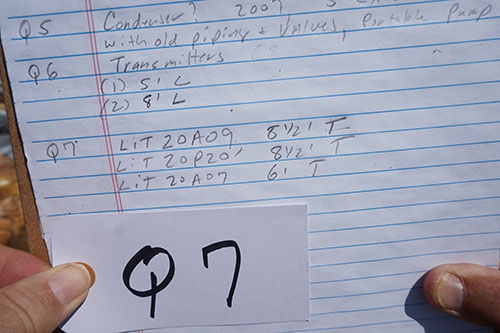 Q5 Condenser? 2007
with old piping & valves, Portable Pump
Q6 Transmitters (5
(1) 5' L
(2) 8' L
Q7 LiT 20A09 8 1/2' T
LiT 20P20' 8 1/2' T
LiT 20A07 6' T
Q7